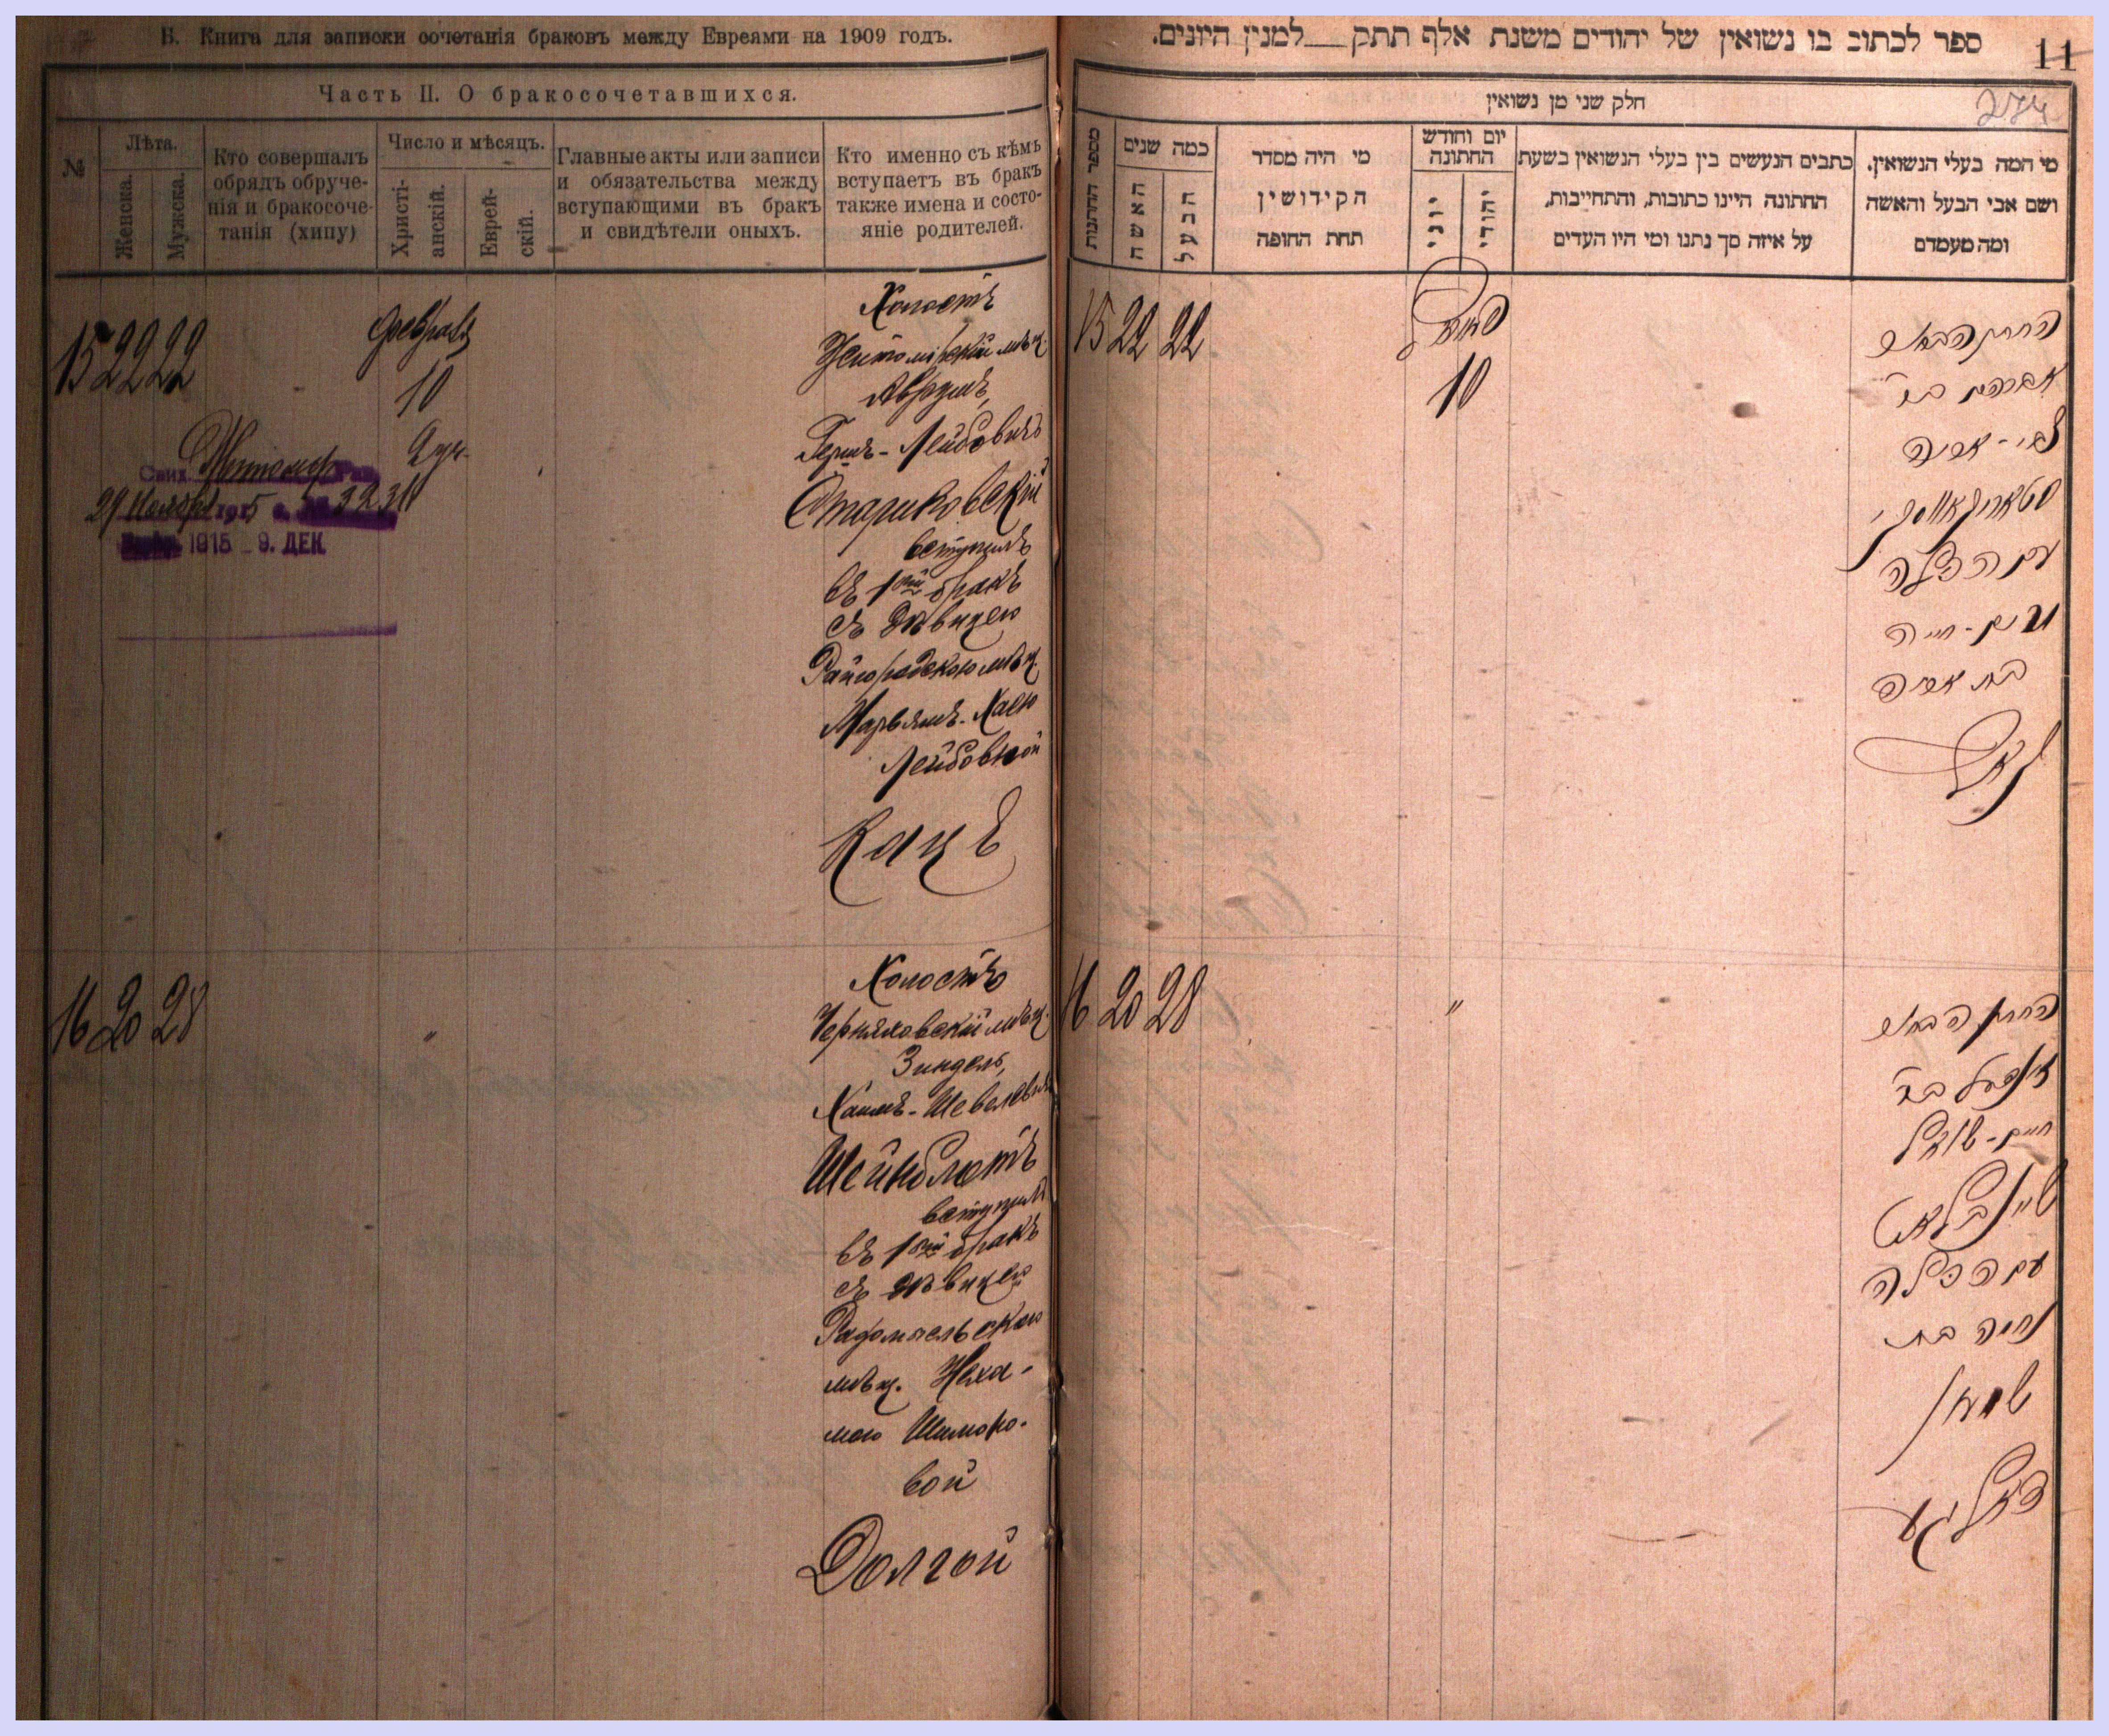 Б. Книга для записки сочетанія браковъ между Евреями на 1909 годъ.
Часть II. О бракосочетавшихся.
№
Лѣта.
Женска.
Мужска.
Кто совершалъ
обрядъ обруче-
нія и бракосоче-
танія (хипу)
Число и мѣсяцъ.
Христі-
анскій.
Еврей-
скій.
Главные акты или записи
и обязательства между
вступающими въ бракъ
и свидѣтели оныхъ.
Кто именно съ кѣмъ
вступаетъ въ бракъ
также имена и состо-
яніе родителей.
15 22 22
Февраля
10
Свид. Житомир
29 Ноября 1915 г. № 3231
1915 9. ДЕК.
Холостъ
Житомірскій мѣщ.
Аврумъ,
Гершъ-Лейбовичъ
Стариковскій
вступилъ
въ 1ый бракъ
съ дѣвицею
Райгородскою мѣщ.
Марьямъ-Хаею
Лейбовной
Кацъ
16 20 28
"
Холостъ
Черняховскій мѣщ.
Зиндель,
Хаимъ-Шевелевичъ
Шейнблютъ
вступилъ
въ 1ый бракъ
съ дѣвицею
Радомысльскою
мѣщ. Неха-
мою Шимоно-
вой
Долгой
ספר לכתוב בו נשואין של יהודים משנת אלף תתק__למנין היונים.
11
274
חלק שני מן נשואין
מספר החתונות
כמה שנים
האשה
הבעל
מי היה מסדר
הקידושין
תחת החופה
יום וחודש
החתונה
יוני
יהודי
כתבים הנעשים בין בעלי הנשואין בשעת
החתונה היינו כתובות, והתחייבות,
על איזה סך נתנו ומי היו העדים
מי המה בעלי הנשואין.
ושם אבי הבעל והאשה
ומה מעמדם
15 22 22
10
החתן הבחור
אברהם בר
צבי-אריה
סטאריקאווסקי
עם הכלה
מרים-חיה
בת אריה
כ"ץ
16 20 28
"
החתן הבחור
זינדעל בר
חיים-שעוויל
שיינבלאט
עם הכלה
נחמה בת
שמעון
דאלגע